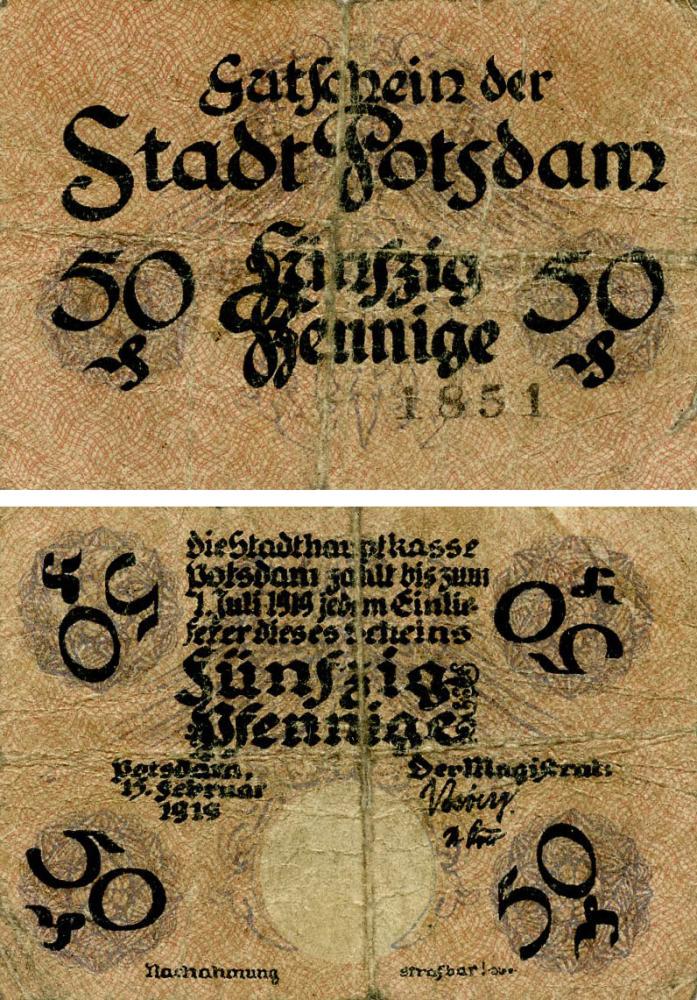 Gutschein der
Stadt Potsdam
50 Fünfzig 50
₰ Pfennige ₰
1851
50 ₰
50 ₰
Die Stadthauptkasse
Potsdam zahlt bis zum
1. Juli 1919 jedem Einlie-
ferer dieses Scheins
Fünfzig
Pfennige
Potsdam,
15. Februar
1919
Der Magistrat:
50 ₰
50 ₰
Nachahmung strafbar!